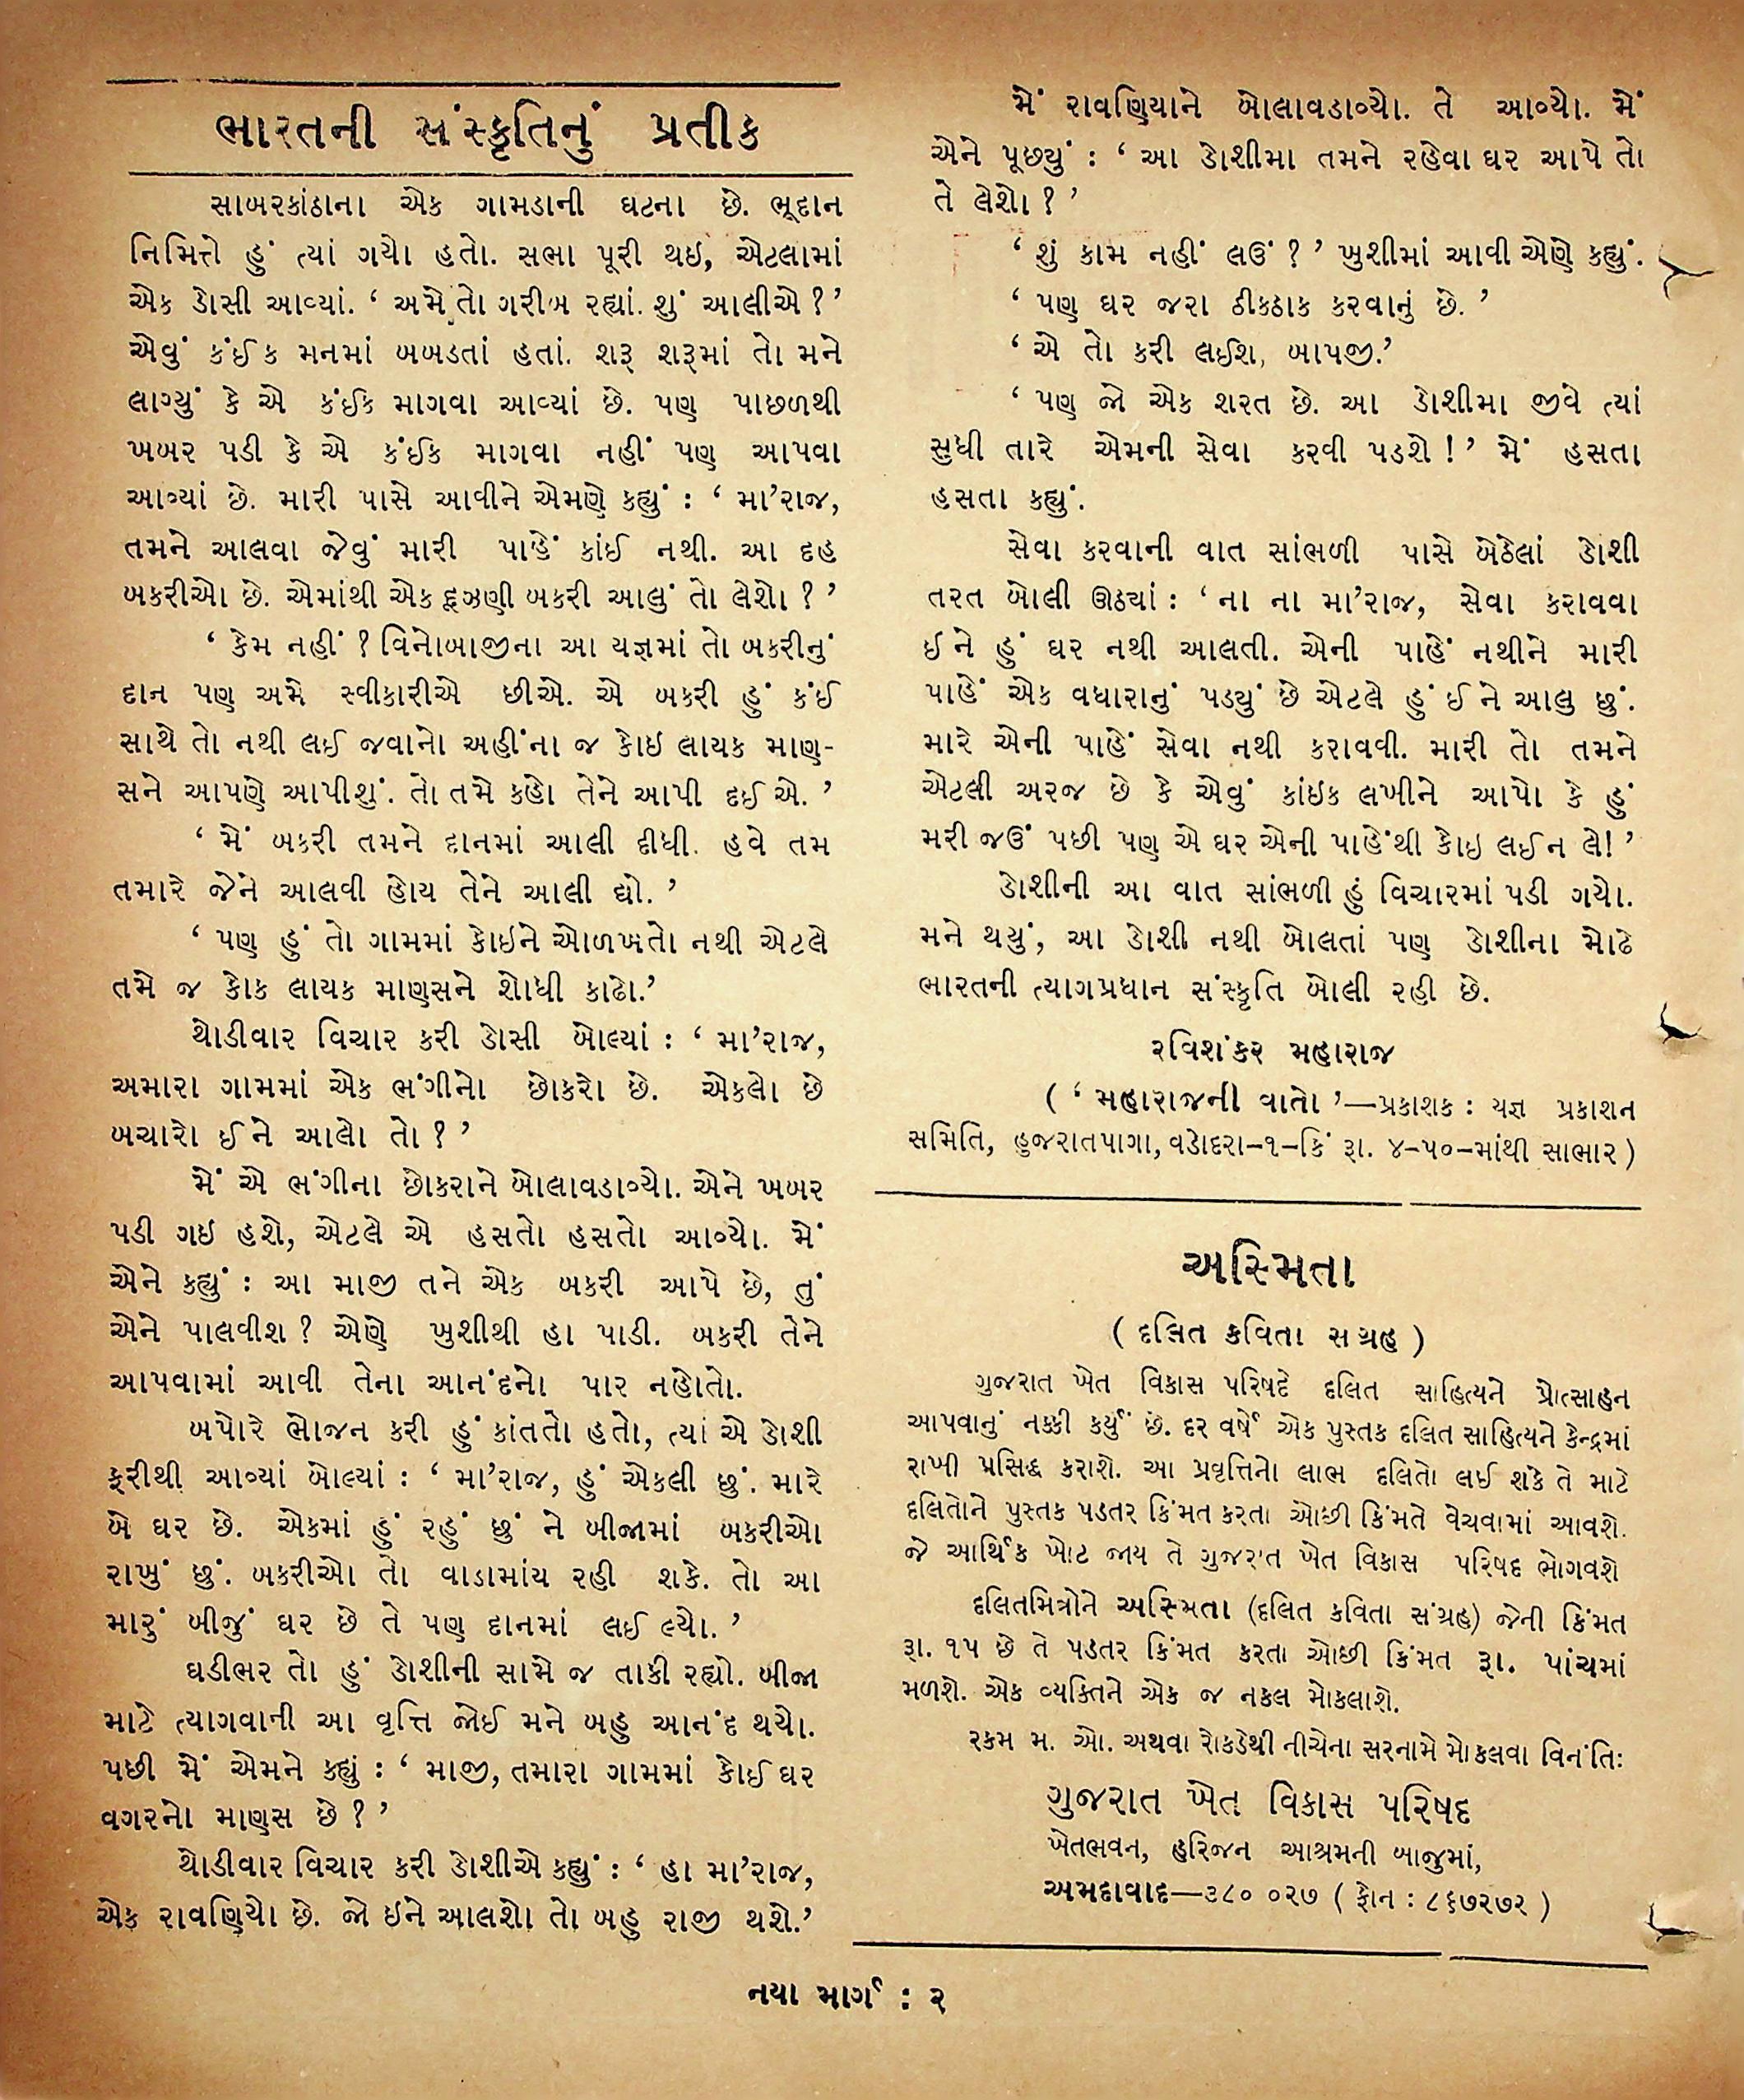 ભારતની સંસ્કૃતિનું પ્રતીક
સાબરકાંઠાના એક ગામડાની ઘટના છે. ભૂદાન
નિમિત્તે હું ત્યાં ગયો હતો. સભા પૂરી થઇ, એટલામાં
એક ડોસી આવ્યાં. ‘ અમે તો ગરીબ રહ્યાં. શું આલીએ ? ’
એવું કંઈક મનમાં બબડતાં હતાં. શરૂ શરૂમાં તો મને
લાગ્યું કે એ કંઈક માગવા આવ્યાં છે. પણ પાછળથી
ખબર પડી કે એ કંઈક માગવા નહીં પણ આપવા
આવ્યાં છે. મારી પાસે આવીને એમણે કહ્યું : ‘ મા’રાજ,
તમને આલવા જેવું મારી પાહેં કાંઈ નથી. આ દહ
બકરીઓ છે. એમાંથી એક દૂઝણી બકરી આલું તો લેશો ? ’
‘ કેમ નહીં ? વિનોબાજીના આ યજ્ઞમાં તો બકરીનું
દાન પણ અમે સ્વીકારીએ છીએ. એ બકરી હું કંઈ
સાથે તો નથી લઈ જવાનો અહીંના જ કોઇ લાયક માણ-
સને આપણે આપીશું. તો તમે કહો તેને આપી દઈએ. ’
‘ મેં બકરી તમને દાનમાં આલી દીધી. હવે તમ
તમારે જેને આલવી હોય તેને આલી દ્યો. ’
‘ પણ હું તો ગામમાં કોઇને ઓળખતો નથી એટલે
તમે જ કોક લાયક માણસને શોધી કાઢો.’
થોડીવાર વિચાર કરી ડોસી બોલ્યાં : ‘ મા’રાજ,
અમારા ગામમાં એક ભંગીનો છોકરો છે. એકલો છે
બચારો ઈને આલો તો ? ’
મેં એ ભંગીના છોકરાને બોલાવડાવ્યો. એને ખબર
પડી ગઇ હશે, એટલે એ હસતો હસતો આવ્યો. મેં
એને કહ્યું : આ માજી તને એક બકરી આપે છે, તું
એને પાલવીશ ? એણે ખુશીથી હા પાડી. બકરી તેને
આપવામાં આવી તેના આનંદનો પાર નહોતો.
બપોરે ભોજન કરી હું કાંતતો હતો, ત્યાં એ ડોશી
ફરીથી આવ્યાં બોલ્યાં : ‘ મા’રાજ, હું એકલી છું. મારે
બે ઘર છે. એકમાં હું રહું છું ને બીજામાં બકરીઓ
રાખું છું. બકરીઓ તો વાડામાંય રહી શકે. તો આ
મારું બીજું ઘર છે તે પણ દાનમાં લઈ લ્યો. ’
ઘડીભર તો હું ડોશીની સામે જ તાકી રહ્યો. બીજા
માટે ત્યાગવાની આ વૃત્તિ જોઈ મને બહુ આનંદ થયો.
પછી મેં એમને કહ્યું : ‘ માજી, તમારા ગામમાં કોઈ ઘર
વગરનો માણસ છે ? ’
થોડીવાર વિચાર કરી ડોશીએ કહ્યું : ‘ હા મા’રાજ,
એક રાવણિયો છે. જો ઇને આલશો તો બહુ રાજી થશે.’
મેં રાવણિયાને બોલાવડાવ્યો. તે આવ્યો. મેં
એને પૂછયું : ‘ આ ડોશીમા તમને રહેવા ઘર આપે તો
તે લેશો ? ’
‘ શું કામ નહીં લઉં ? ’ ખુશીમાં આવી એણે કહ્યું.
‘ પણ ઘર જરા ઠીકઠાક કરવાનું છે. ’
‘ એ તો કરી લઈશ, બાપજી.’
‘ પણ જો એક શરત છે. આ ડોશીમા જીવે ત્યાં
સુધી તારે એમની સેવા કરવી પડશે ! ’ મેં હસતા
હસતા કહ્યું.
સેવા કરવાની વાત સાંભળી પાસે બેઠેલાં ડોશી
તરત બોલી ઊઠયાં : ‘ ના ના મા’રાજ, સેવા કરાવવા
ઈને હું ઘર નથી આલતી. એની પાહેં નથીને મારી
પાહેં એક વધારાનું પડયું છે એટલે હું ઈને આલુ છું.
મારે એની પાહેં સેવા નથી કરાવવી. મારી તો તમને
એટલી અરજ છે કે એવું કાંઇક લખીને આપો કે હું
મરી જઉં પછી પણ એ ઘર એની પાહેંથી કોઇ લઈ ન લે! ’
ડોશીની આ વાત સાંભળી હું વિચારમાં પડી ગયો.
મને થયું, આ ડોશી નથી બોલતાં પણ ડોશીના મોઢે
ભારતની ત્યાગપ્રધાન સંસ્કૃતિ બોલી રહી છે.
રવિશંકર મહારાજ
( ‘ મહારાજની વાતો ’—પ્રકાશક : યજ્ઞ પ્રકાશન
સમિતિ, હુજરાતપાગા, વડોદરા-૧-કિં રૂા. ૪-૫૦-માંથી સાભાર )
અસ્મિતા
( દલિત કવિતા સંગ્રહ )
ગુજરાત ખેત વિકાસ પરિષદે દલિત સાહિત્યને પ્રોત્સાહન
આપવાનું નક્કી કર્યું છે. દર વર્ષે એક પુસ્તક દલિત સાહિત્યને કેન્દ્રમાં
રાખી પ્રસિદ્ધ કરાશે. આ પ્રવૃત્તિનો લાભ દલિતો લઈ શકે તે માટે
દલિતોને પુસ્તક પડતર કિંમત કરતા ઓછી કિંમતે વેચવામાં આવશે.
જે આર્થિક ખોટ જાય તે ગુજરાત ખેત વિકાસ પરિષદ ભોગવશે
દલિતમિત્રોને અસ્મિતા (દલિત કવિતા સંગ્રહ) જેની કિંમત
રૂા. ૧૫ છે તે પડતર કિંમત કરતા ઓછી કિંમત રૂા. પાંચમાં
મળશે. એક વ્યક્તિને એક જ નકલ મોકલાશે.
રકમ મ. ઓ. અથવા રોકડેથી નીચેના સરનામે મોકલવા વિનંતિઃ
ગુજરાત ખેત વિકાસ પરિષદ
ખેતભવન, હરિજન આશ્રમની બાજુમાં,
અમદાવાદ—૩૮૦ ૦૨૭ ( ફોન : ૮૬૭૨૭૨ )
નયા માર્ગ : ૨